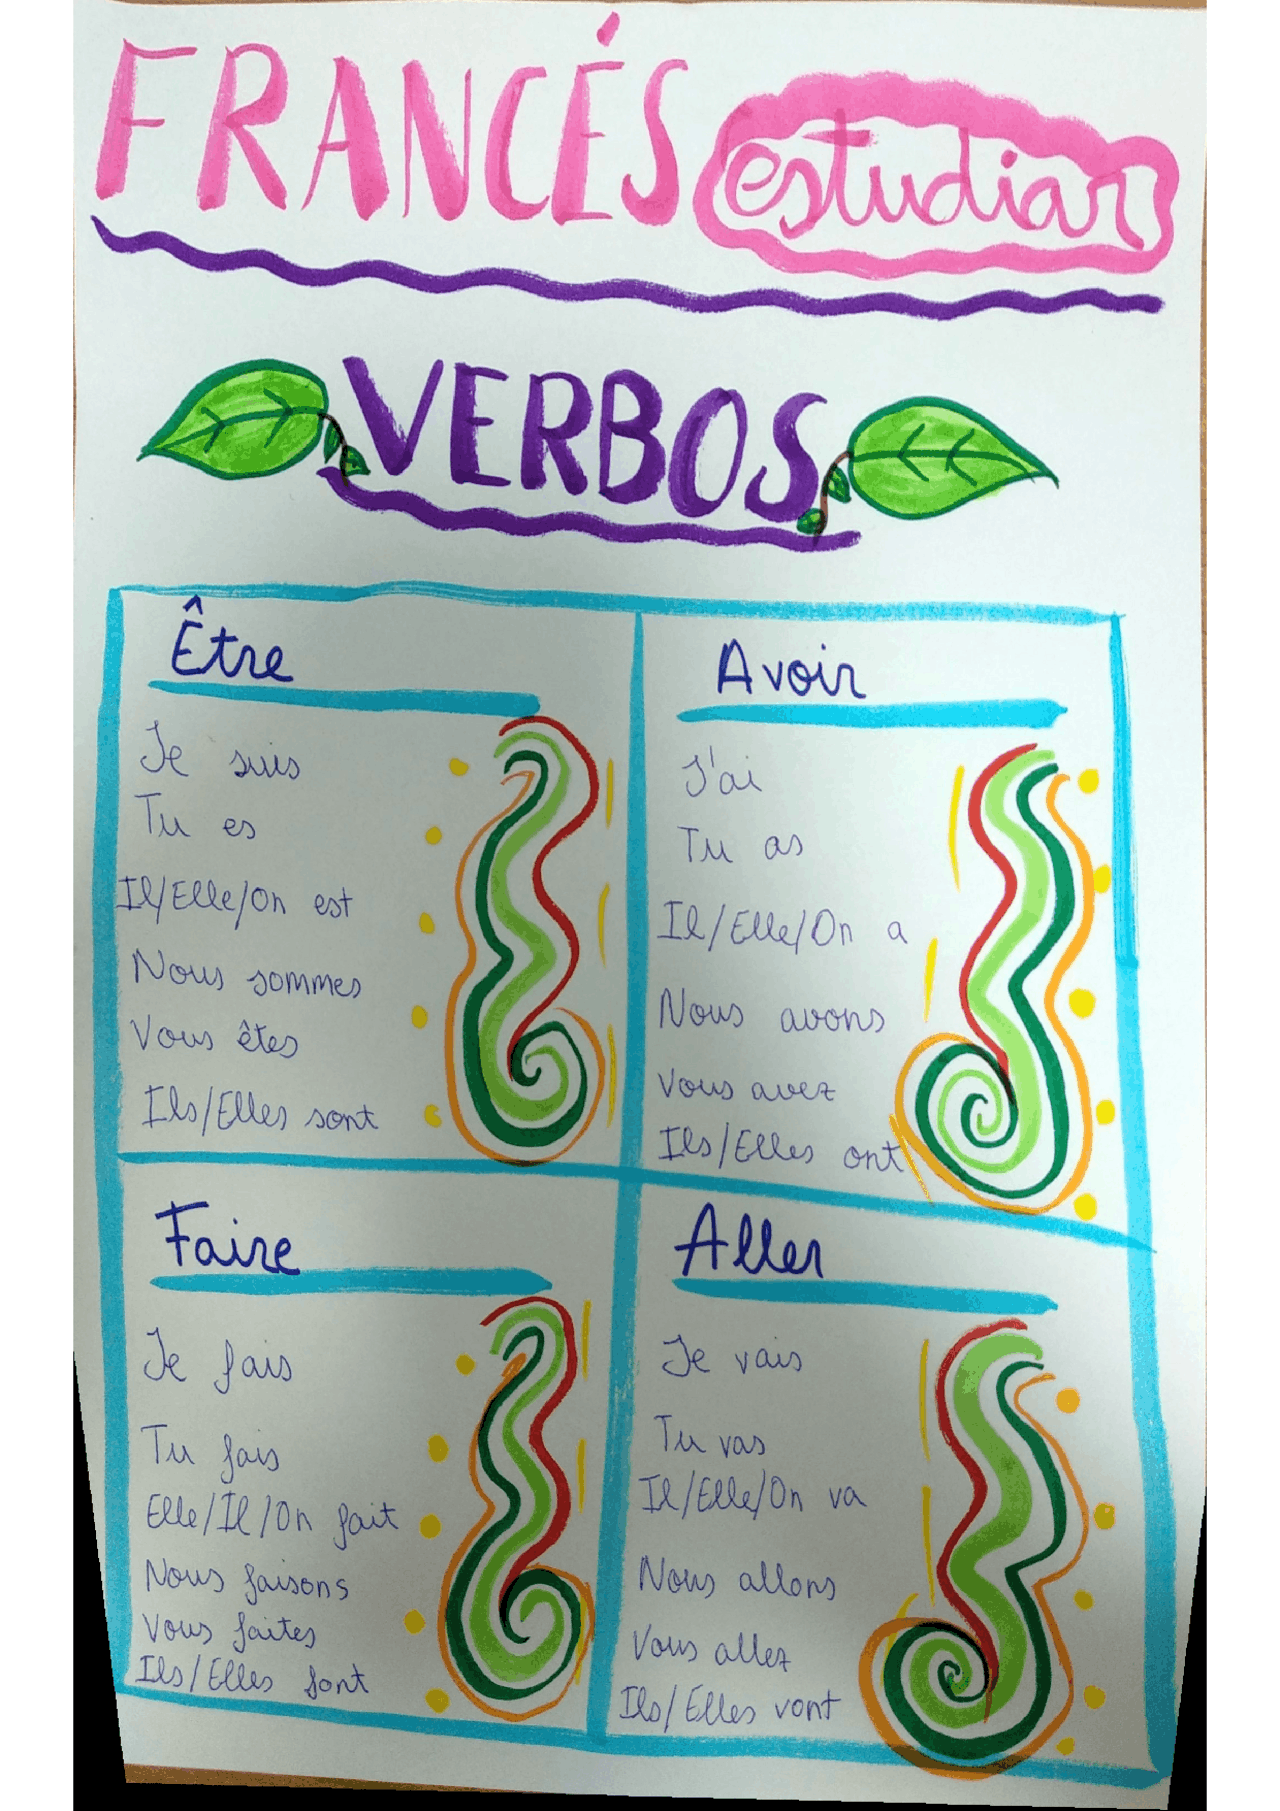 FRANCÉS estudiar
VERBOS
Être
Je suis
Tu es
Il/Elle/On est
Nous sommes
Vous êtes
Ils/Elles sont
Avoir
J'ai
Tu as
Il/Elle/On a
Nous avons
Vous avez
Ils/Elles ont
Faire
Je fais
Tu fais
Elle/Il/On fait
Nous faisons
Vous faites
Ils/Elles font
Aller
Je vais
Tu vas
Il/Elle/On va
Nous allons
Vous allez
Ils/Elles vont